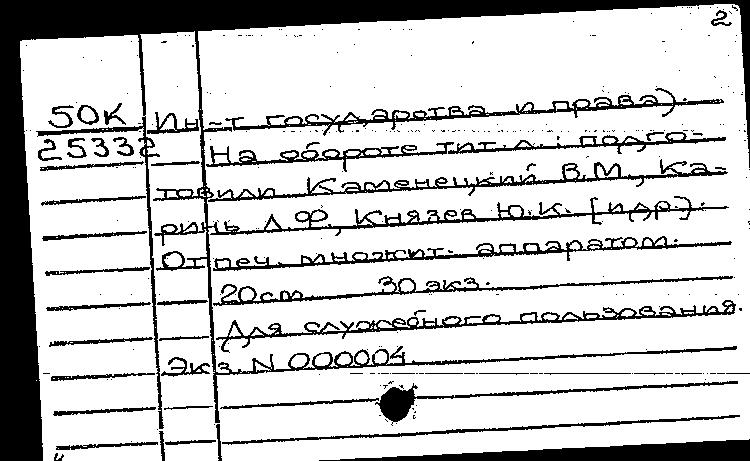 2
50К Ин-т государства и права).
25332 На обороте тит. л.: подго-
товили Каменецкий В.М., Ка-
ринь Л.Ф., Князев Ю.К. [и др.].
Отпеч. множит. аппаратом.
20см 30 экз.
Для служебного пользования.
Экз. N 000004.